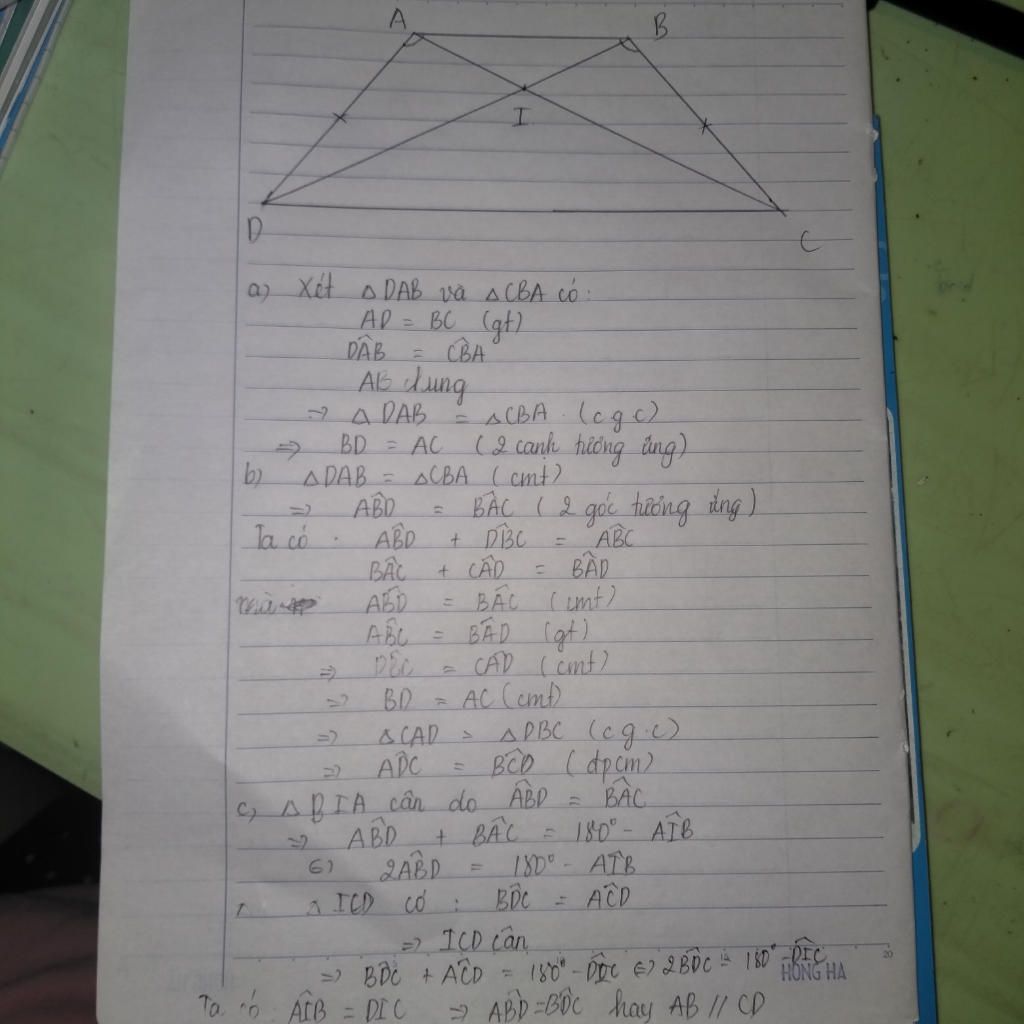 A
B
I
D
C
a) Xét △DAB và △CBA có:
AD = BC (gt)
DÂB = CB̂A
AB chung
⇒ △DAB = △CBA (c.g.c)
⇒ BD = AC (2 cạnh tương ứng)
b) △DAB = △CBA (cmt)
⇒ AB̂D = BÂC (2 góc tương ứng)
Ta có: AB̂D + DB̂C = AB̂C
BÂC + CÂD = BÂD
mà AB̂D = BÂC (cmt)
AB̂C = BÂD (gt)
⇒ DB̂C = CÂD (cmt)
⇒ BD = AC (cmt)
⇒ △CAD = △DBC (c.g.c)
⇒ AD̂C = BĈD (đpcm)
c, △BIA cân do AB̂D = BÂC
⇒ AB̂D + BÂC = 180° - AÎB
⇔ 2AB̂D = 180° - AÎB
△ICD có: BD̂C = AĈD
⇒ ICD cân
⇒ BD̂C + AĈD = 180° - DÎC ⇔ 2BD̂C = 180° - DÎC
20
HONG HA
Ta có AÎB = DIC ⇒ AB̂D = BD̂C hay AB // CD